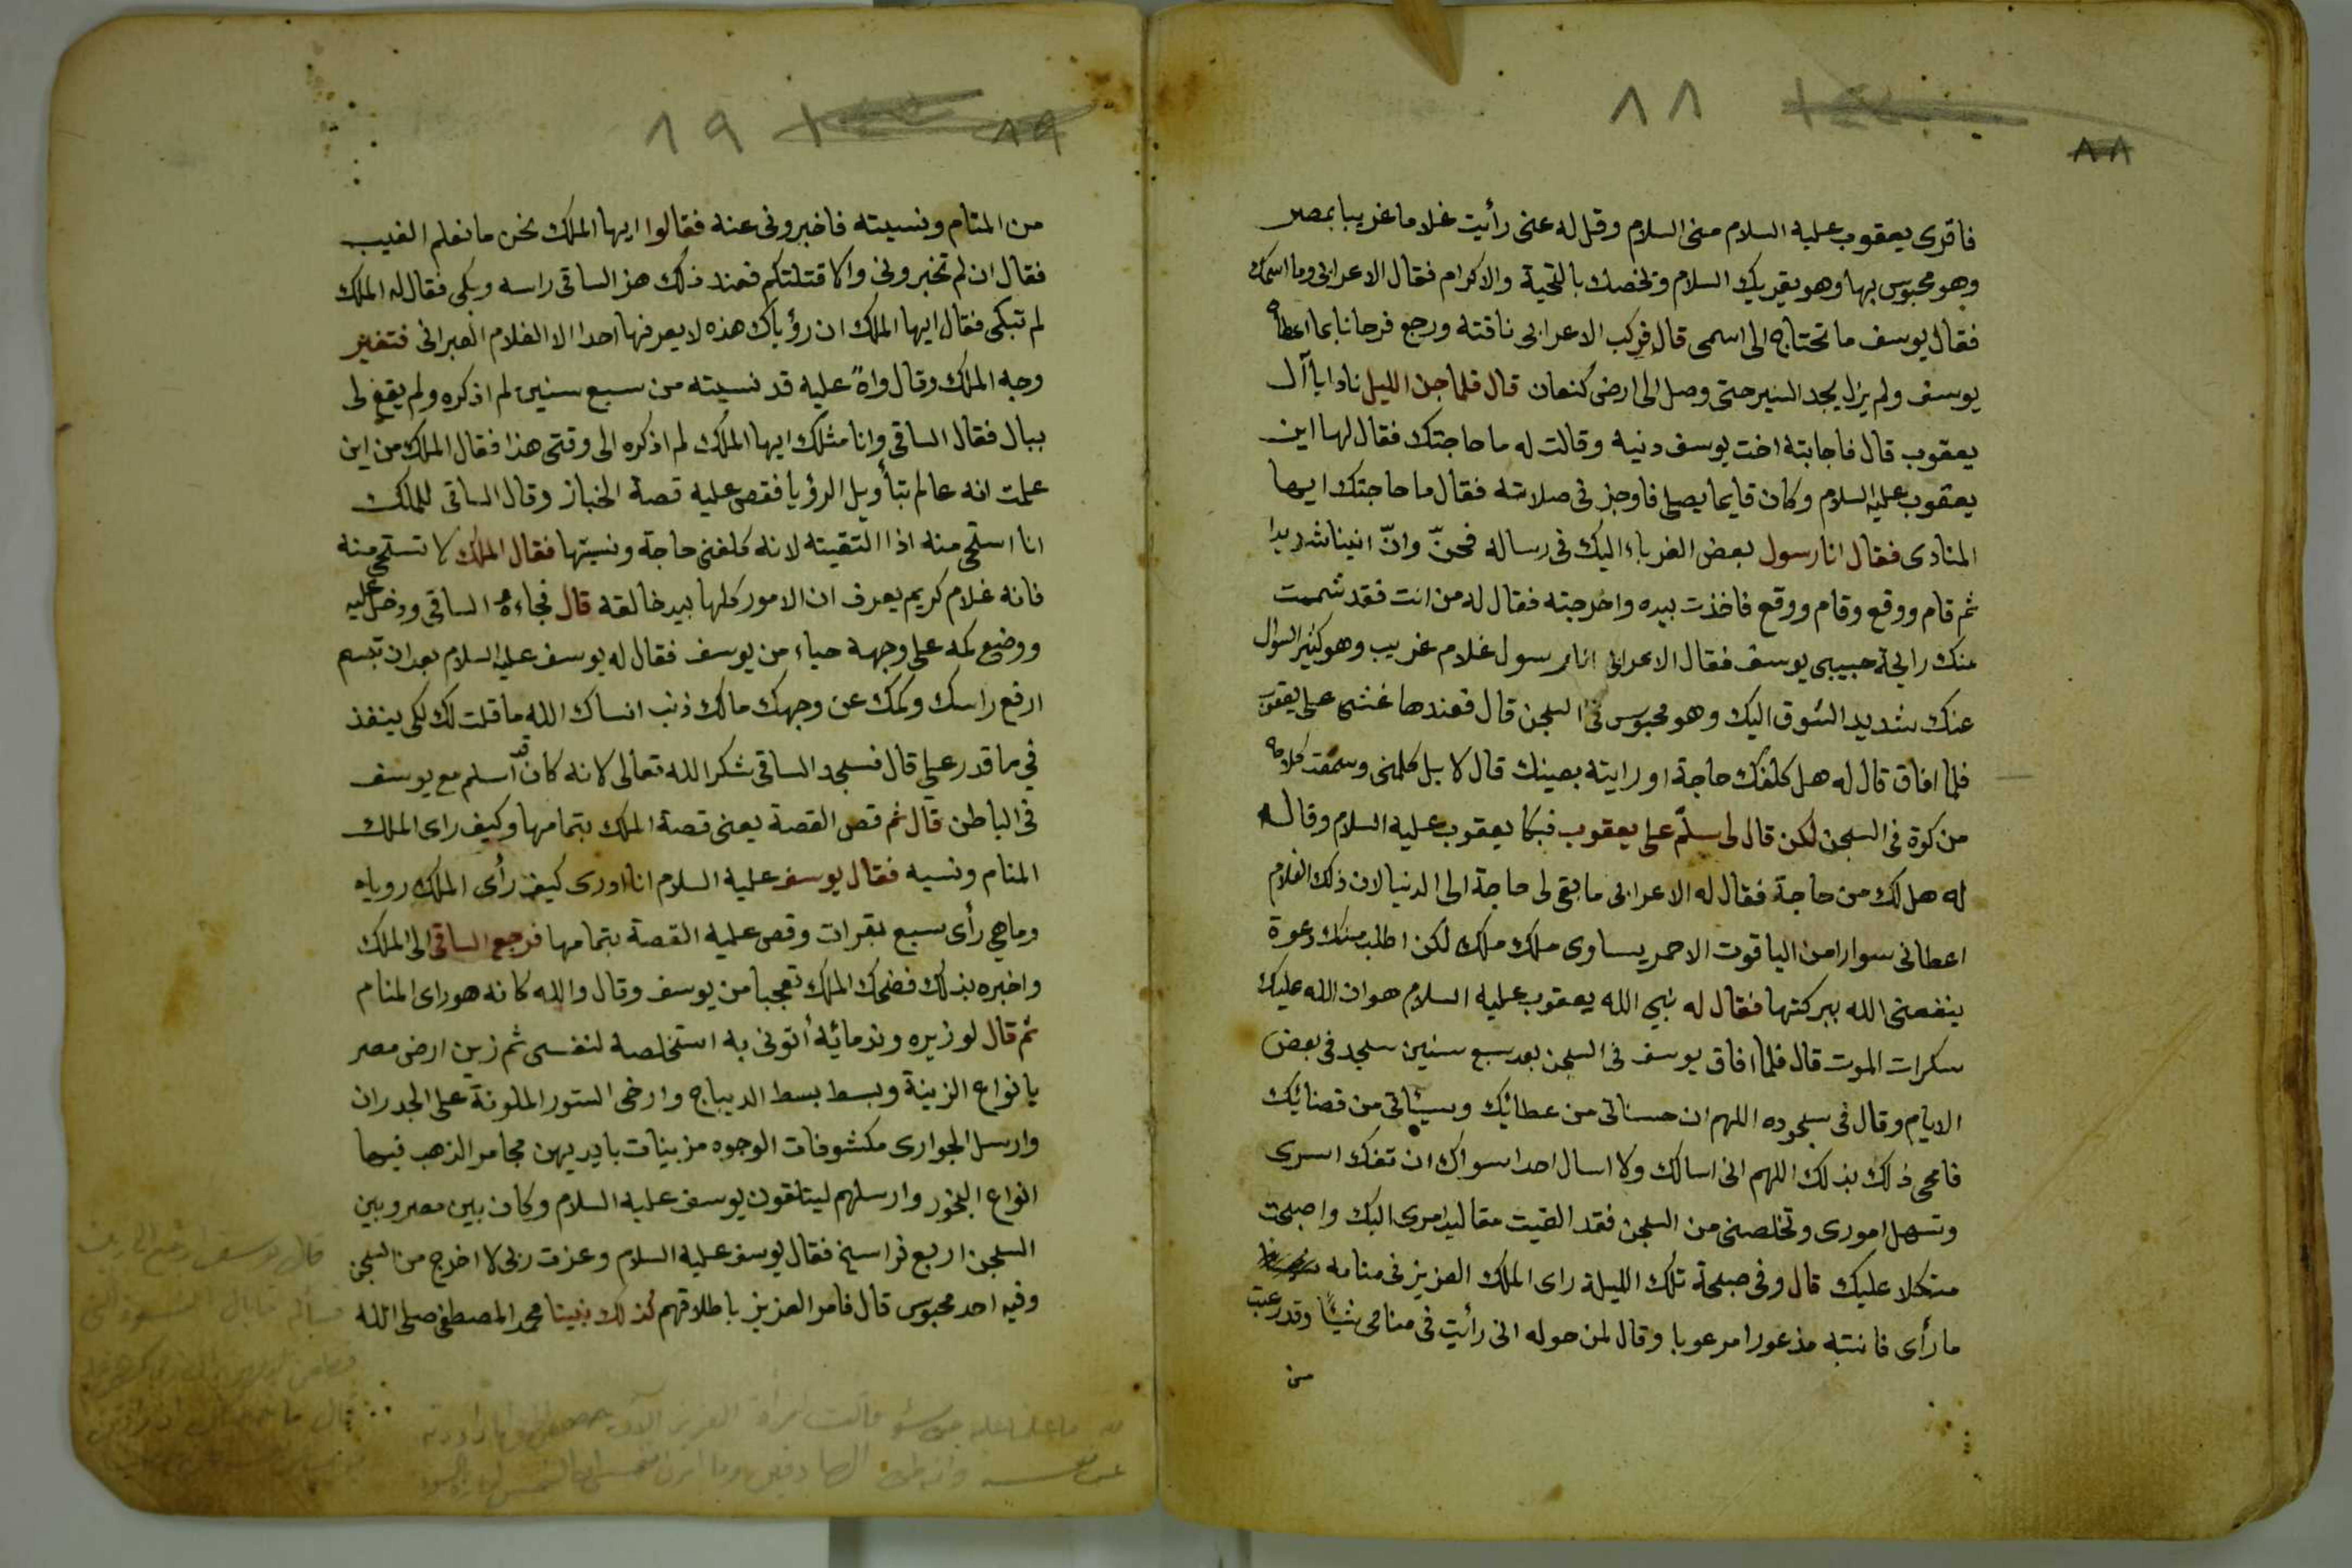 ٨٨
٨٨
فاقرى يعقوب عليه السلام منى السلام وقل له عنى رأيت غلاما غريبا بمصر
وهو محبوس بها وهو يقريك السلام ويخصك بالتحية والاكرام فقال الاعرابى وما اسمك
فقال يوسف ما تحتاج الى اسمى قال فركب الاعرابى ناقته ورجع فرحانا بما اعطاه
يوسف ولم يزل يجد السير حتى وصل الى ارض كنعان قال فلما جن الليل نادا يا آل
يعقوب قال فاجابته اخت يوسف دنيه وقالت له ما حاجتك فقال لها اين
يعقوب عليه السلام وكان قايما يصلى فاوجز فى صلاته فقال ما حاجتك ايها
المنادى فقال انا رسول بعض الغرباء اليك فى رساله فحنّ وانّ انينا شديدا
ثم قام ووقع وقام ووقع فاخذت بيده واخرجته فقال له من انت فقد شممت
منك رايحة حبيبى يوسف فقال الاعرابى انا رسول غلام غريب وهو كثير السؤال
عنك شديد الشوق اليك وهو محبوس فى السجن قال فعندها غشى على يعقوب
فلما افاق قال له هل كلفك حاجة او رايته بعينك قال لا بل كلمنى وسمعت كلامه
من كوة فى السجن لكن قال لى سلّم على يعقوب فبكا يعقوب عليه السلام وقال له
له هل لك من حاجة فقال له الاعرابى ما بقى لى حاجة الى الدنيا لان ذلك الغلام
اعطانى سوارا من الياقوت الاحمر يساوى ملك ملك لكن اطلب منك دعوة
ينفعنى الله ببركتها فقال له نبي الله يعقوب عليه السلام هوان الله عليك
سكرات الموت قال فلما افاق يوسف فى السجن بعد سبع سنين سجد فى بعض
الايام وقال فى سجوده اللهم ان حسناتى من عطائك وسيئاتى من قضائك
فامحى ذلك بذلك اللهم انى اسالك ولا اسال احدا سواك ان تفك اسرى
وتسهل امورى وتخلصنى من السجن فقد القيت مقاليد امرى اليك واصبحت
متكلا عليك قال وفى صبحة تلك الليلة راى الملك العزيز فى منامه
ما رأى فانتبه مذعورا مرعوبا وقال لمن حوله انى رأيت فى منامى شيئًا وقد رعبت
من
٨٩
٨٩
من المنام ونسيته فاخبرونى عنه فقالوا ايها الملك نحن ما نعلم الغيب
فقال ان لم تخبرونى والا قتلتكم فعند ذلك هز الساقى راسه وبكى فقال له الملك
لم تبكى فقال ايها الملك ان رؤياك هذه لا يعرفها احدا الا الغلام العبرانى فتغير
وجه الملك وقال واهً عليه قد نسيته من سبع سنين لم اذكره ولم يقع لى
ببال فقال الساقى وانا مثلك ايها الملك لم اذكره الى وقتى هذا فقال الملك من اين
علمت انه عالم بتأويل الرؤيا فقص عليه قصة الخباز وقال الساقى للملك
انا استحى منه اذا التقيته لانه كلفنى حاجة ونسيتها فقال الملك لا تستحى منه
فانه غلام كريم يعرف ان الامور كلها بيد خالقه قال فجاءه الساقى ودخل عليه
ووضع كمه على وجهه حياء من يوسف فقال له يوسف عليه السلام بعد ان تبسم
ارفع راسك وكمك عن وجهك مالك ذنب انساك الله ما قلت لك لكى ينفذ
في ما قدر علي قال فسجد الساقى شكرا لله تعالى لانه كان قد اسلم مع يوسف
فى الباطن قال ثم قص القصة يعنى قصة الملك بتمامها وكيف راى الملك
المنام ونسيه فقال يوسف عليه السلام انا ادرى كيف رأى الملك روياه
وماهي رأى سبع بقرات وقص عليه القصة بتمامها فرجع الساقى الى الملك
واخبره بذلك فضحك الملك تعجبا من يوسف وقال والله كانه هو راى المنام
ثم قال لوزيره وندمائه أتونى به استخلصه لنفسى ثم زين ارض مصر
بانواع الزينة وبسط بسط الديباج وارخى الستور الملونة على الجدران
وارسل الجوارى مكشوفات الوجوه مزينات بايديهن مجامر الذهب فيها
انواع البخور وارسلهم ليتلقون يوسف عليه السلام وكان بين مصر وبين
السجن اربع فراسخ فقال يوسف عليه السلام وعزت ربى لا اخرج من السجن
وفيه احد محبوس قال فامر العزيز باطلاقهم كذلك نبينا محمد المصطفى صلى الله